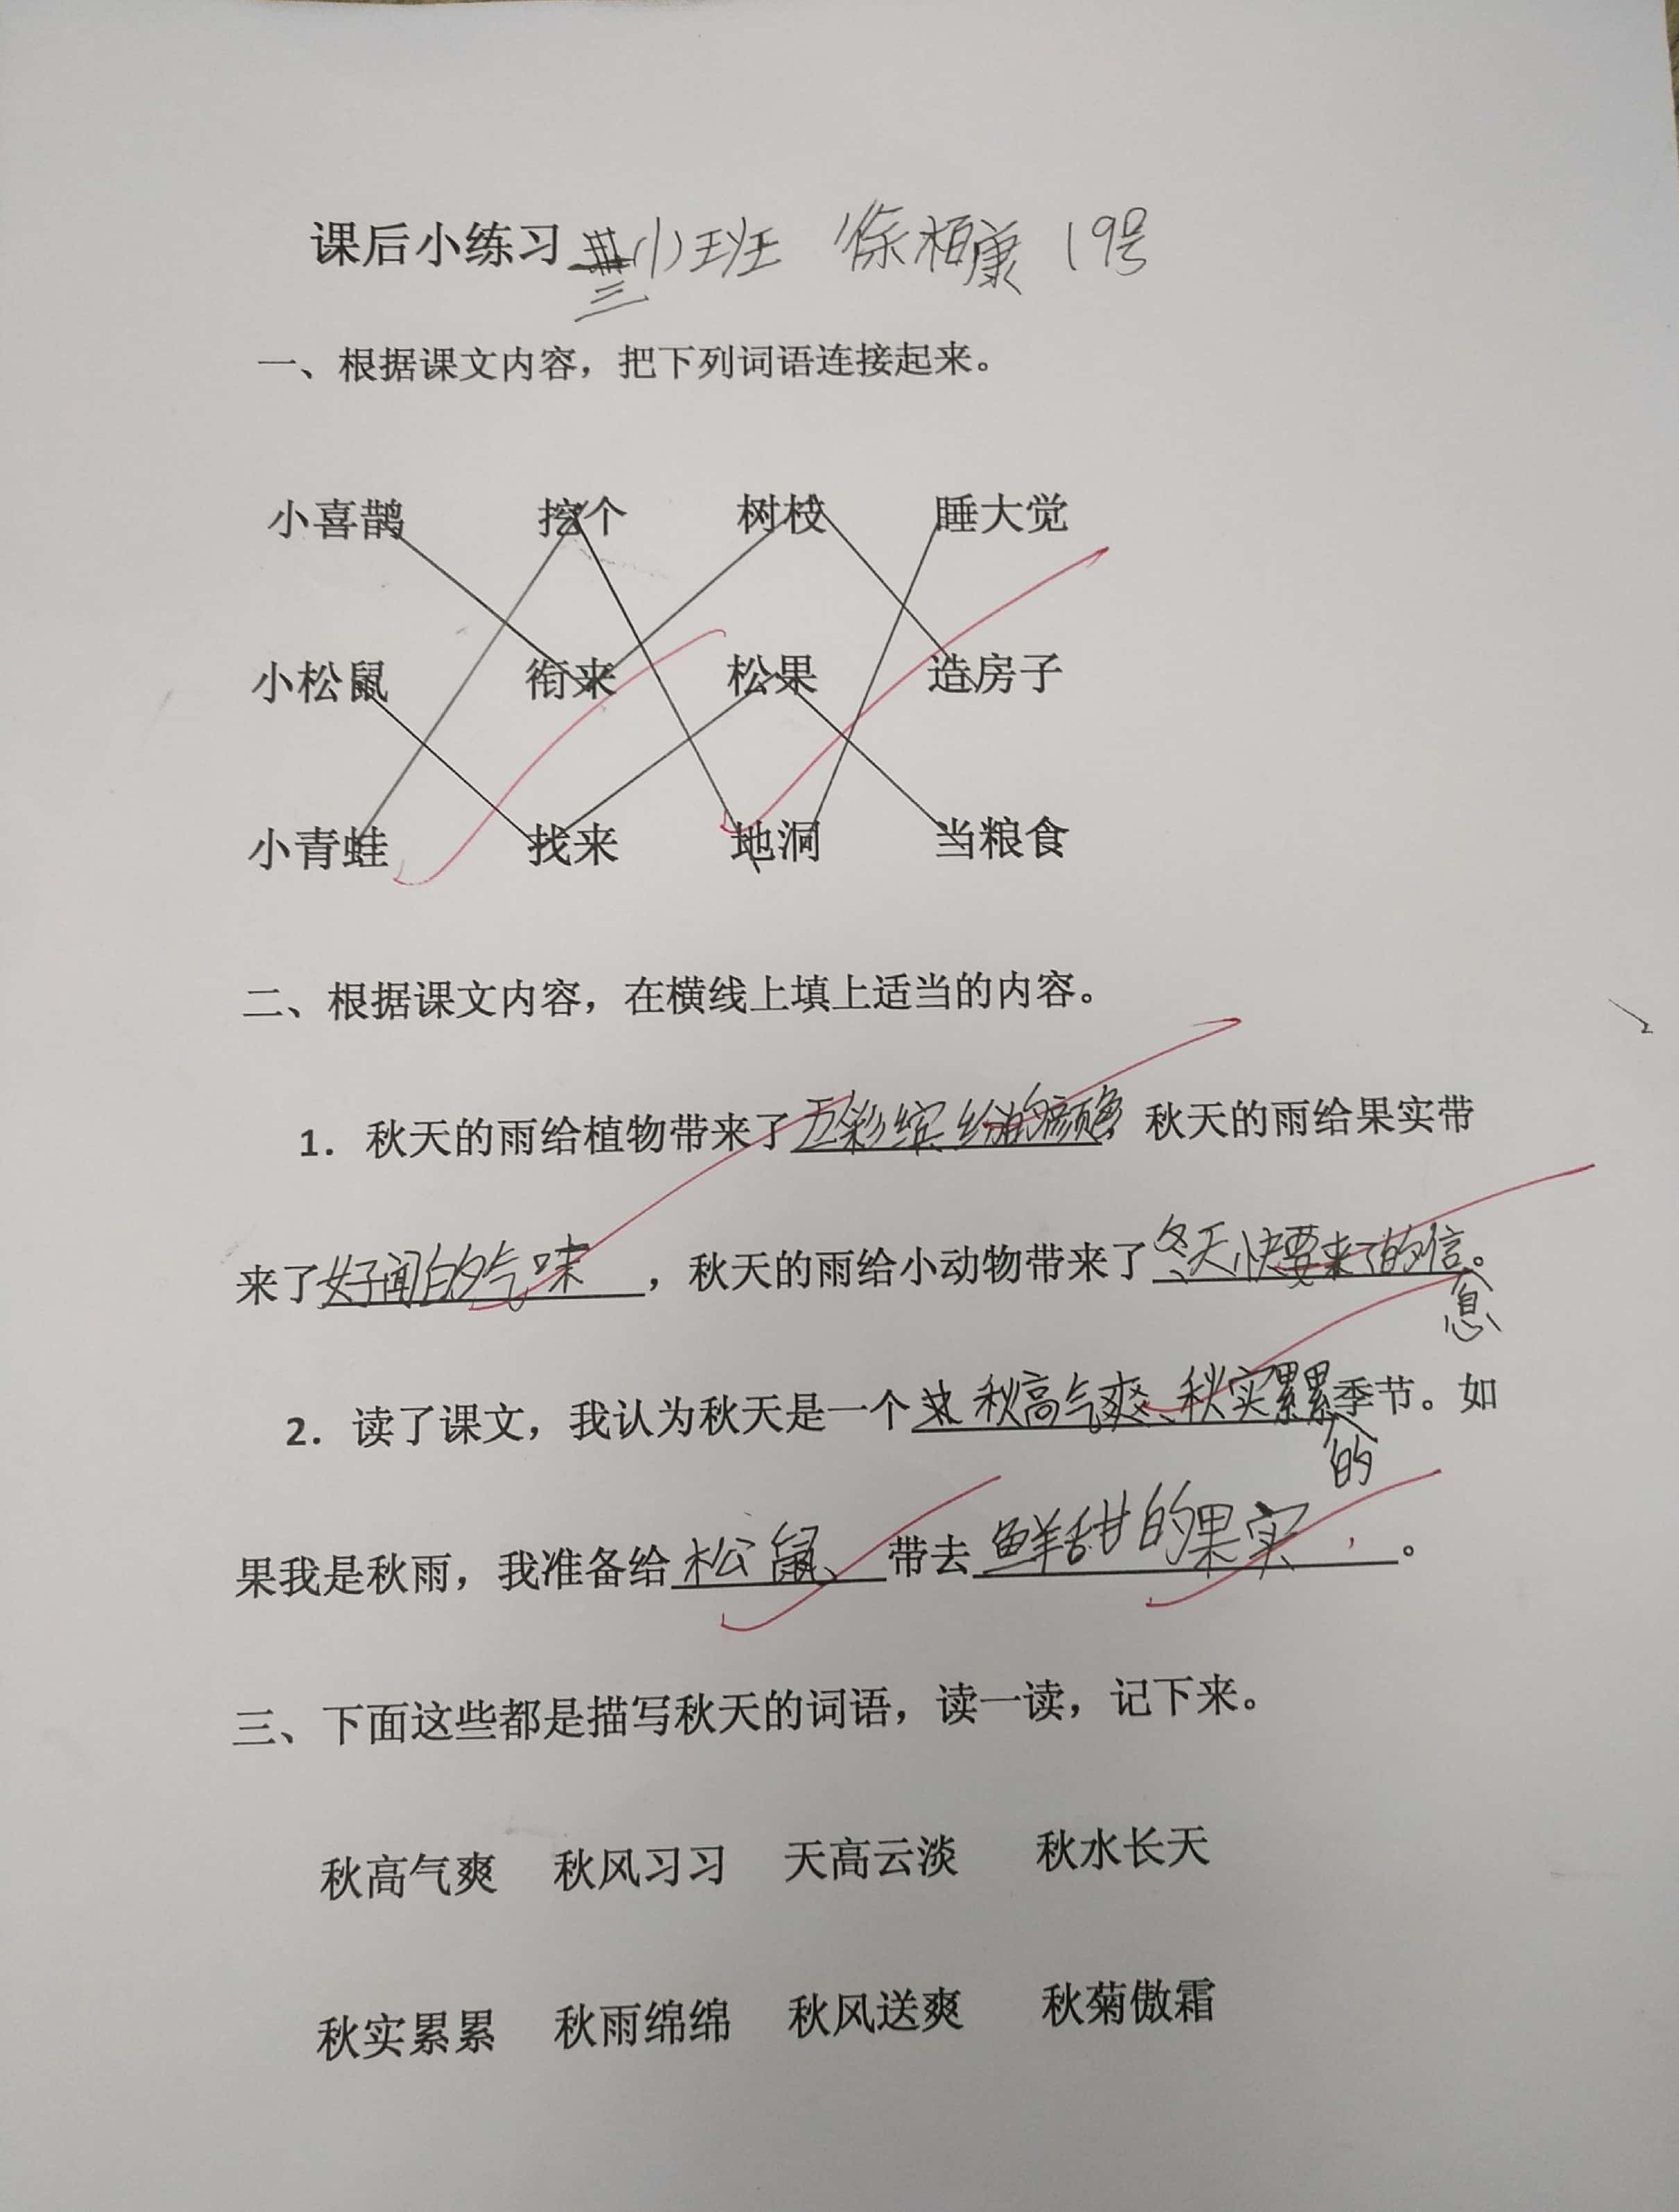 课后小练习 三(1)班 徐柏康 19号
一、根据课文内容，把下列词语连接起来。
小喜鹊 挖个 树枝 睡大觉
小松鼠 衔来 松果 造房子
小青蛙 找来 地洞 当粮食
二、根据课文内容，在横线上填上适当的内容。
1. 秋天的雨给植物带来了五彩缤纷的颜色 秋天的雨给果实带
来了好闻的气味，秋天的雨给小动物带来了冬天快要来了的信息。
2. 读了课文，我认为秋天是一个秋高气爽、秋实累累的季节。如
果我是秋雨，我准备给松鼠、带去鲜甜的果实。
三、下面这些都是描写秋天的词语，读一读，记下来。
秋高气爽 秋风习习 天高云淡 秋水长天
秋实累累 秋雨绵绵 秋风送爽 秋菊傲霜